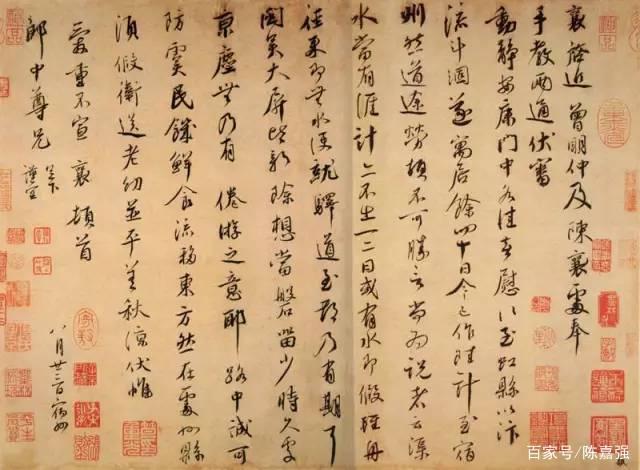 襄啓近曾明仲及陳襄處奉
手教兩通伏審
動靜安康門中各佳喜慰以至虹縣以汴
流斗涸遂寓居餘四十日今已作陸計至宿
州然道途勞頓不可勝言尚為說者云渠
水當有涯計亦不出一二日或有水即假輕舟
徑來即無水便就驛道至都乃有期耳
閩吳大屏皆新除想當磐留少時久處
京塵無乃有倦游之意耶路中誠可
防虞民饑鮮食流移東方然在處州縣
須假衛送老幼並平善秋涼伏惟
愛重不宣襄頓首
郎中尊兄足下
謹空
八月廿三日宿州
百家号/陈嘉强